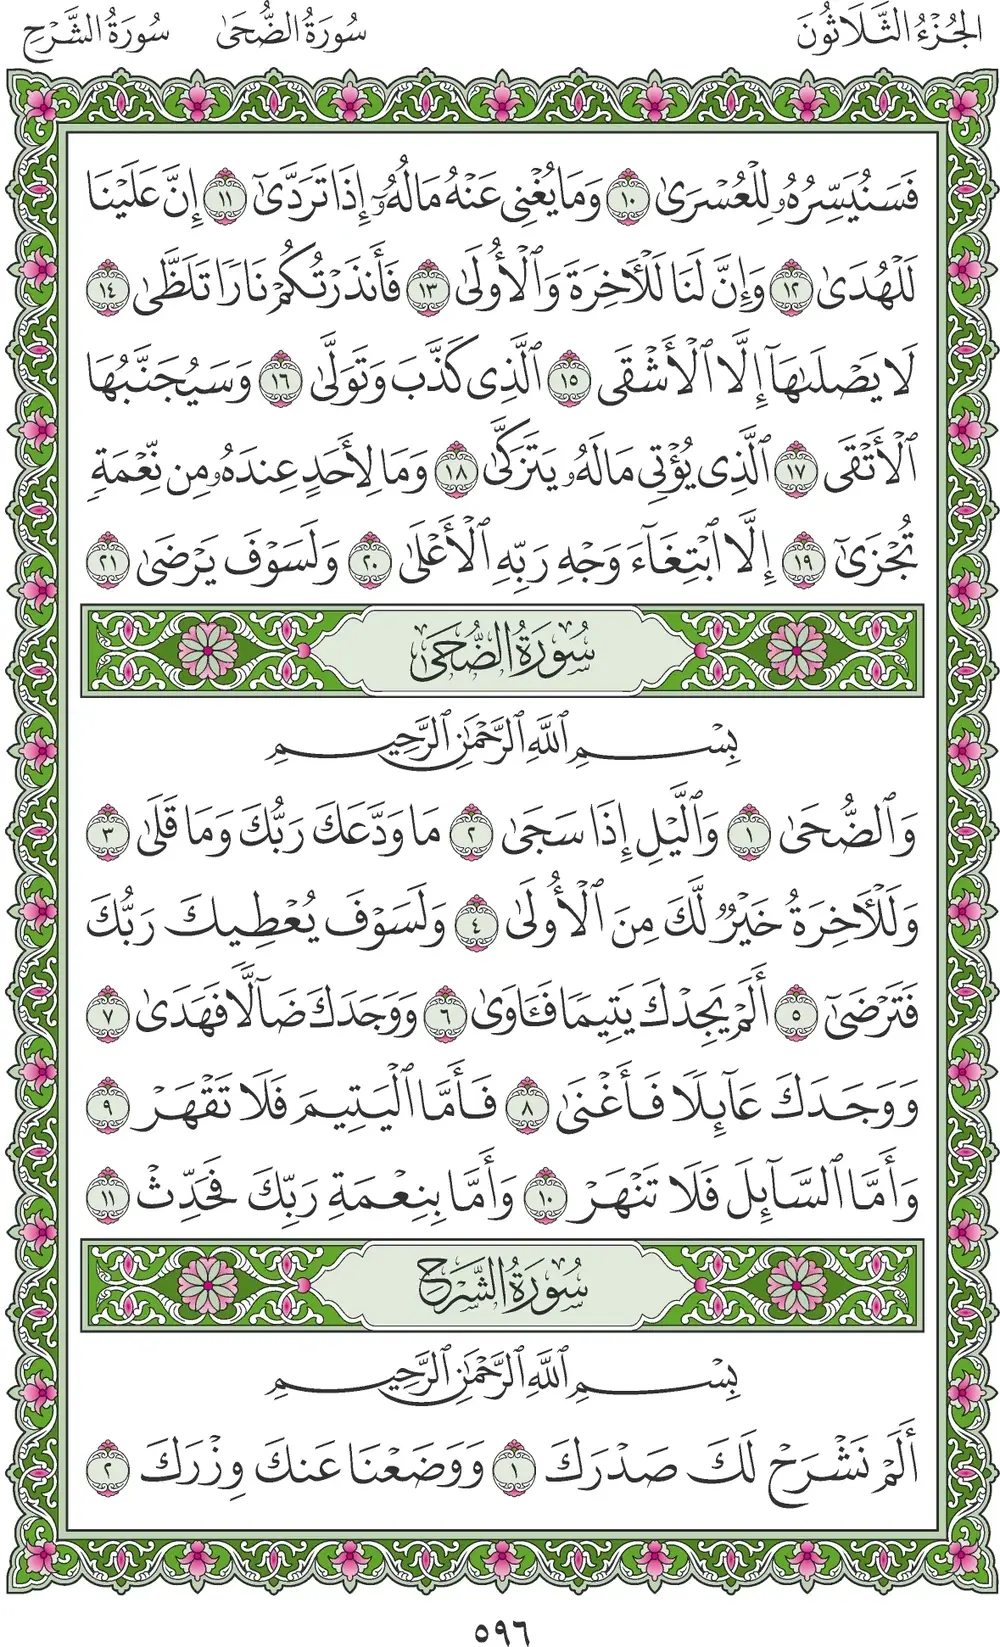 الجُزْءُ الثَّلَاثُونَ سُورَةُ الضُّحَى سُورَةُ الشَّرْحِ
فَسَنُيَسِّرُهُۥ لِلْعُسْرَىٰ ١٠ وَمَا يُغْنِى عَنْهُ مَالُهُۥٓ إِذَا تَرَدَّىٰٓ ١١ إِنَّ عَلَيْنَا
لَلْهُدَىٰ ١٢ وَإِنَّ لَنَا لَلْـَٔاخِرَةَ وَٱلْأُولَىٰ ١٣ فَأَنذَرْتُكُمْ نَارًا تَلَظَّىٰ ١٤
لَا يَصْلَىٰهَآ إِلَّا ٱلْأَشْقَى ١٥ ٱلَّذِى كَذَّبَ وَتَوَلَّىٰ ١٦ وَسَيُجَنَّبُهَا
ٱلْأَتْقَى ١٧ ٱلَّذِى يُؤْتِى مَالَهُۥ يَتَزَكَّىٰ ١٨ وَمَا لِأَحَدٍ عِندَهُۥ مِن نِّعْمَةٍ
تُجْزَىٰٓ ١٩ إِلَّا ٱبْتِغَآءَ وَجْهِ رَبِّهِ ٱلْأَعْلَىٰ ٢٠ وَلَسَوْفَ يَرْضَىٰ ٢١
سُورَةُ الضُّحَى
بِسْمِ ٱللَّهِ ٱلرَّحْمَٰنِ ٱلرَّحِيمِ
وَٱلضُّحَىٰ ١ وَٱلَّيْلِ إِذَا سَجَىٰ ٢ مَا وَدَّعَكَ رَبُّكَ وَمَا قَلَىٰ ٣
وَلَلْـَٔاخِرَةُ خَيْرٌ لَّكَ مِنَ ٱلْأُولَىٰ ٤ وَلَسَوْفَ يُعْطِيكَ رَبُّكَ
فَتَرْضَىٰٓ ٥ أَلَمْ يَجِدْكَ يَتِيمًا فَـَٔاوَىٰ ٦ وَوَجَدَكَ ضَآلًّا فَهَدَىٰ ٧
وَوَجَدَكَ عَآئِلًا فَأَغْنَىٰ ٨ فَأَمَّا ٱلْيَتِيمَ فَلَا تَقْهَرْ ٩
وَأَمَّا ٱلسَّآئِلَ فَلَا تَنْهَرْ ١٠ وَأَمَّا بِنِعْمَةِ رَبِّكَ فَحَدِّثْ ١١
سُورَةُ الشَّرْحِ
بِسْمِ ٱللَّهِ ٱلرَّحْمَٰنِ ٱلرَّحِيمِ
أَلَمْ نَشْرَحْ لَكَ صَدْرَكَ ١ وَوَضَعْنَا عَنكَ وِزْرَكَ ٢
٥٩٦